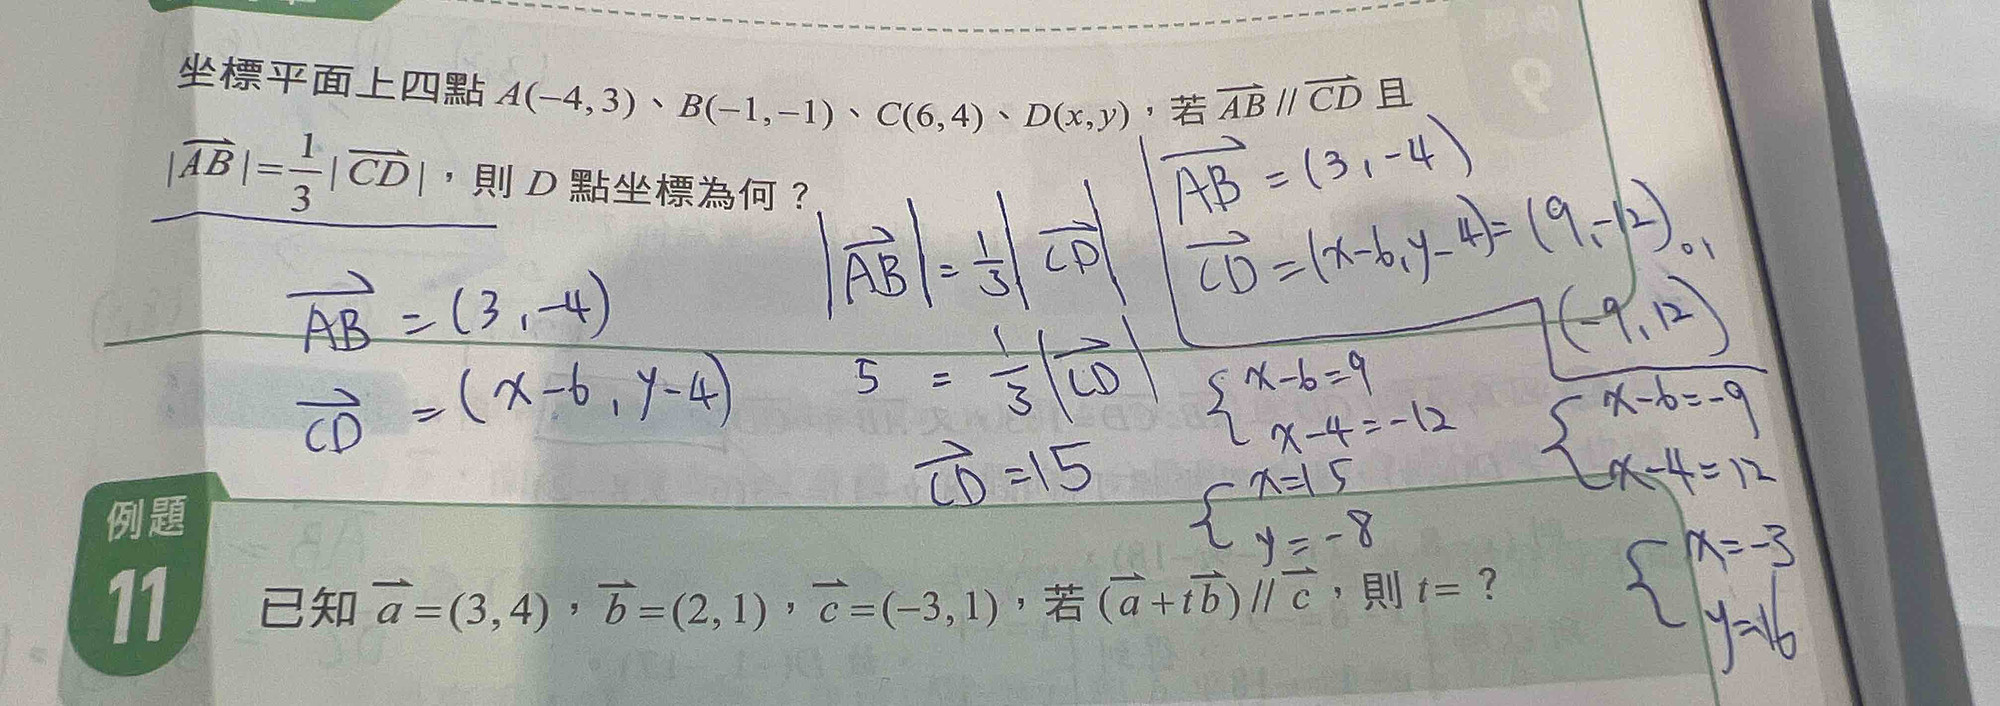 坐標平面上四點 A(−4,3)、B(−1,−1)、C(6,4)、D(x,y),若 \overrightarrow{AB} // \overrightarrow{CD} 且
|\overrightarrow{AB}|=\frac{1}{3}|\overrightarrow{CD}|,則 D 點坐標為何?
\overrightarrow{AB} = (3,-4)
\overrightarrow{CD} = (x-6, y-4)
|\overrightarrow{AB}| = \frac{1}{3}|\overrightarrow{CD}|
5 = \frac{1}{3}|\overrightarrow{CD}|
\overrightarrow{CD} = 15
\overrightarrow{AB} = (3,-4)
\overrightarrow{CD} = (x-6, y-4) = (9,-12) or
(-9,12)
{ x-6=9
x-4=-12
{ x=15
y=-8
{ x-6=-9
x-4=12
{ x=-3
y=16
例題
11
已知 \overrightarrow{a}=(3,4),\overrightarrow{b}=(2,1),\overrightarrow{c}=(−3,1),若 (\overrightarrow{a}+t\overrightarrow{b})//\overrightarrow{c},則 t=?